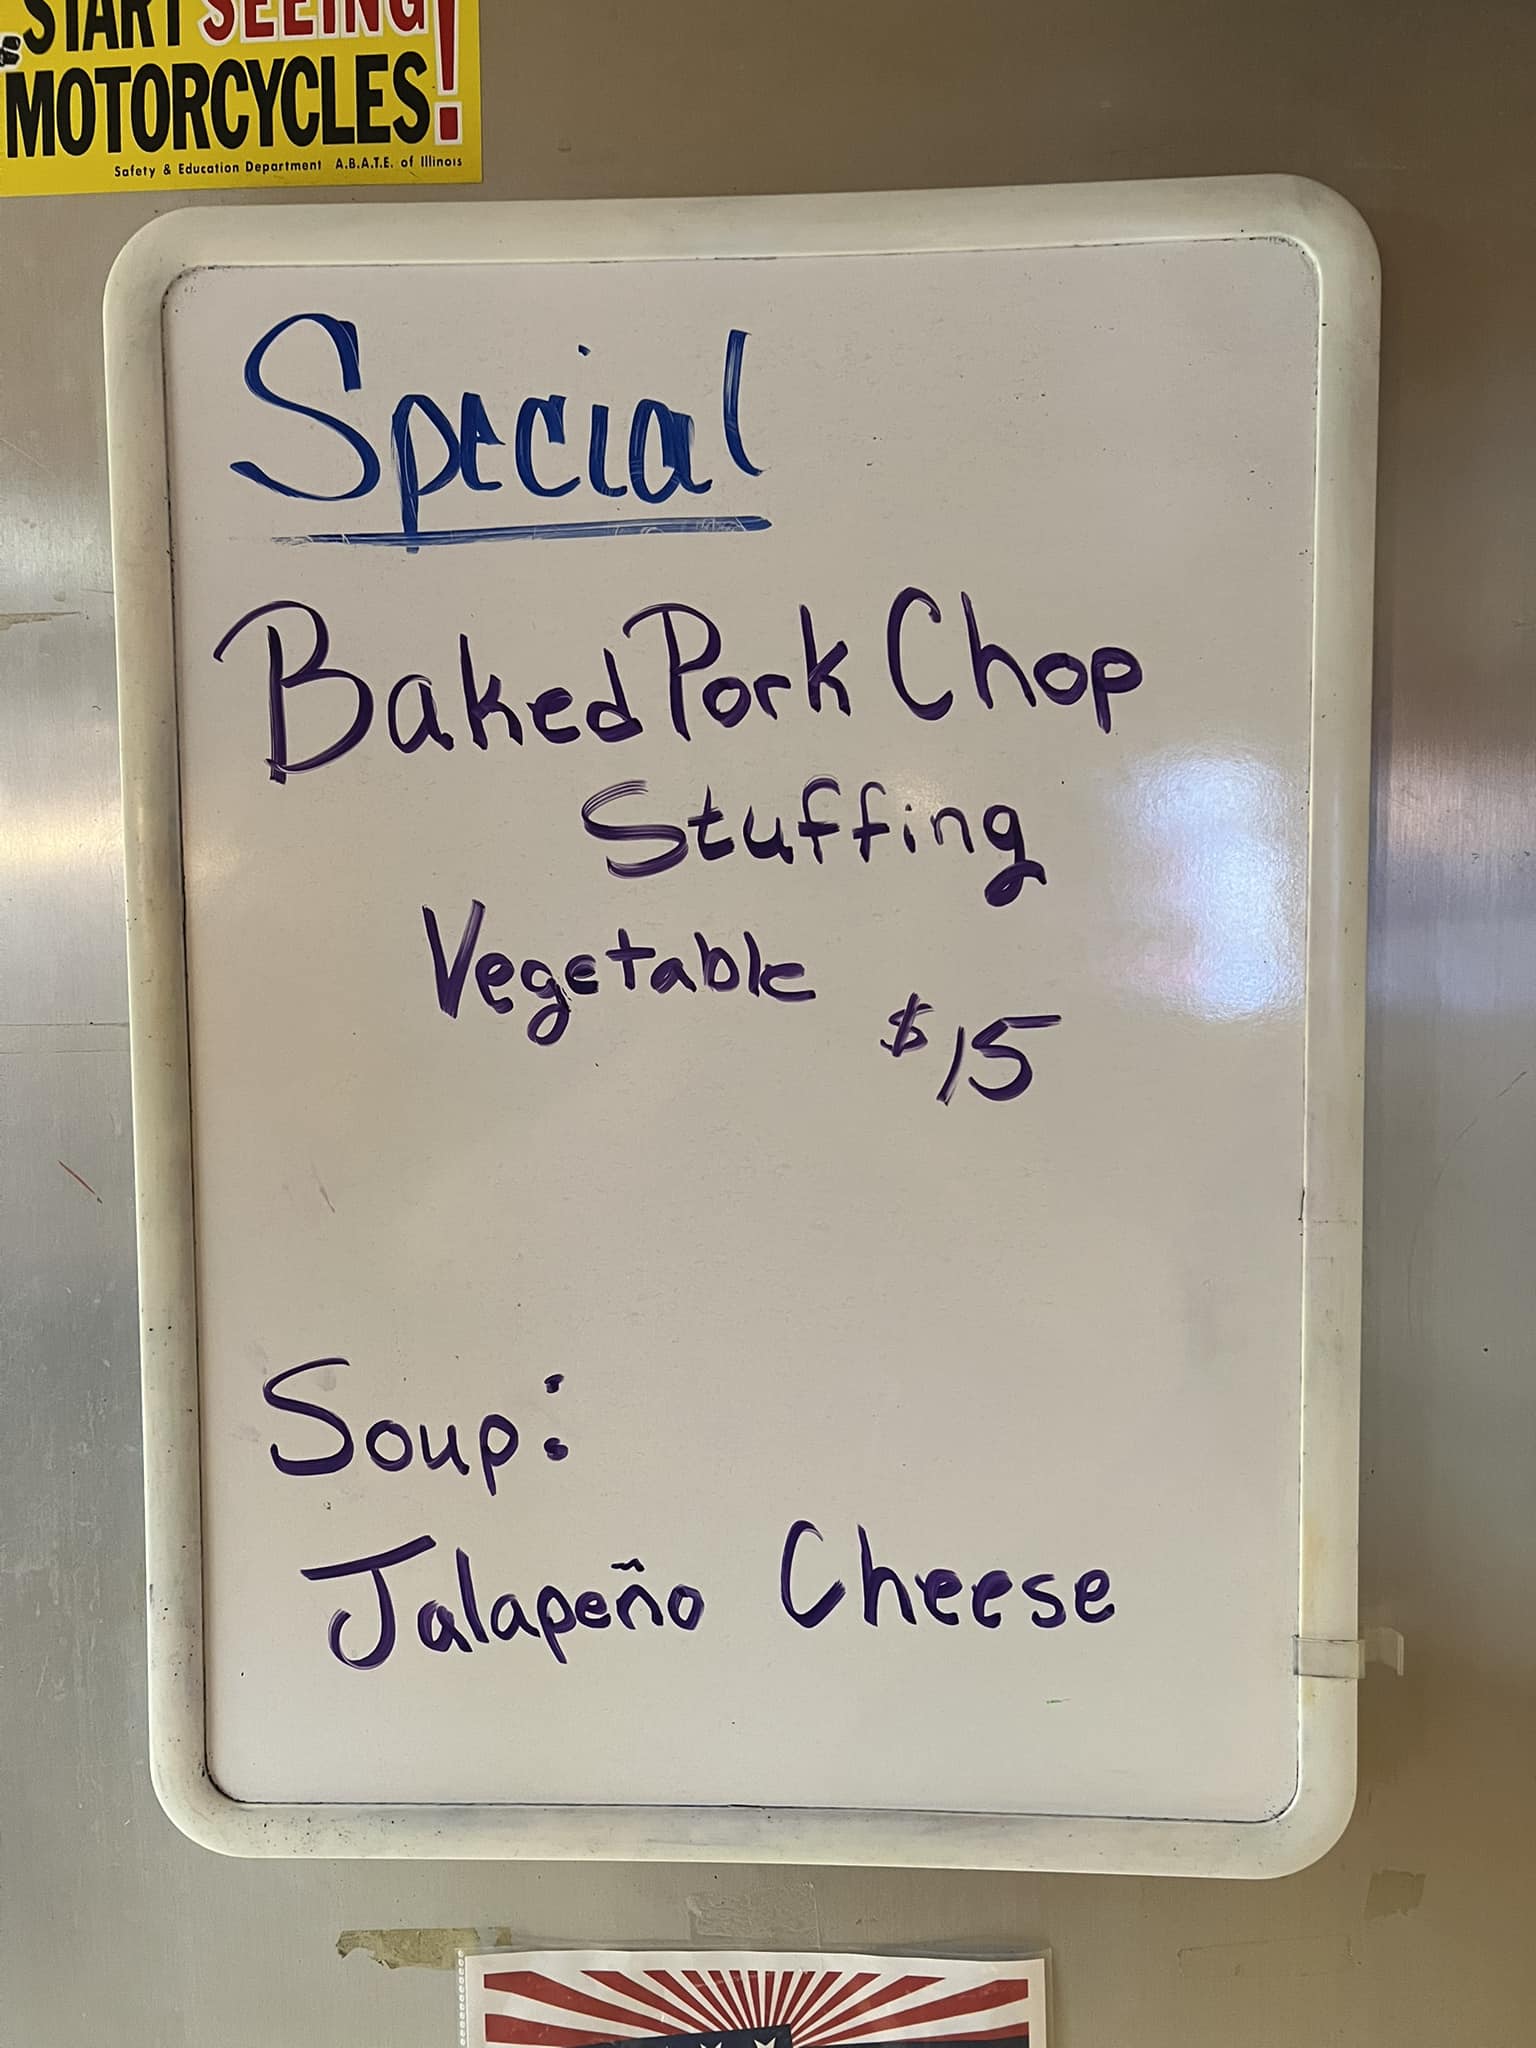 START SEEING
MOTORCYCLES!
Safety & Education Department A.B.A.T.E. of Illinois
Special
Baked Pork Chop
Stuffing
Vegetable
$15
Soup:
Jalapeño Cheese